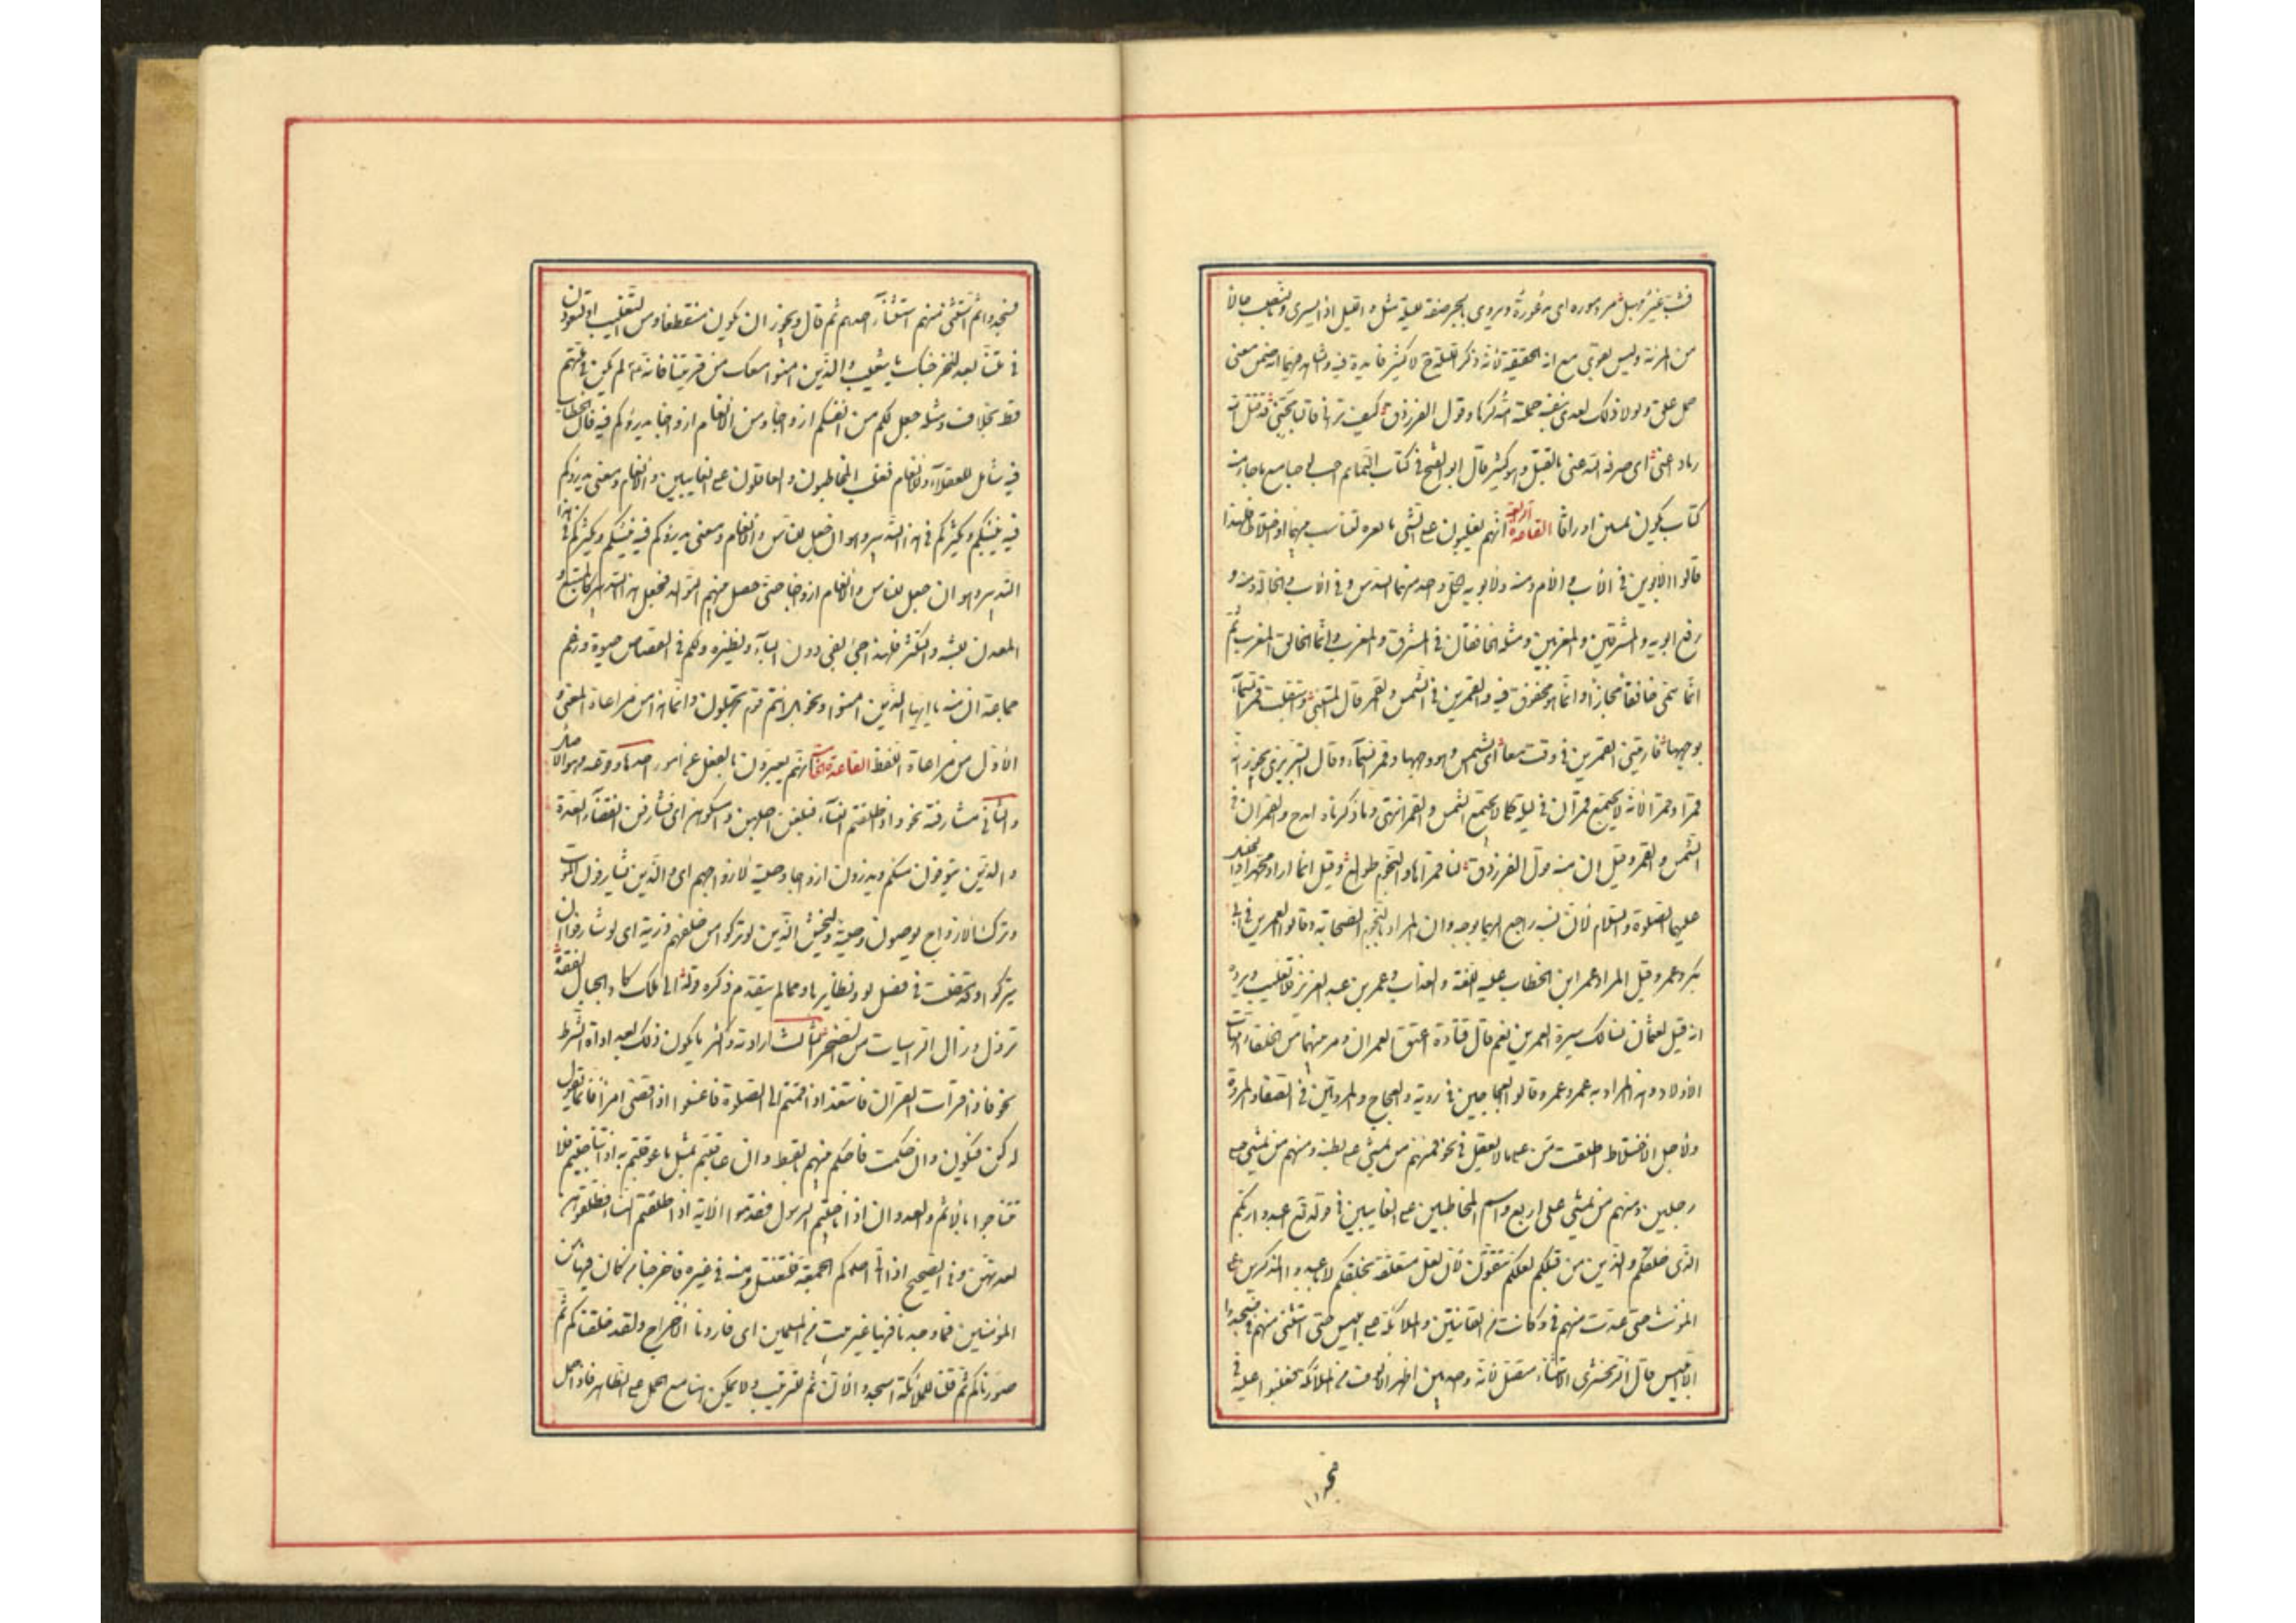 من المرنة وليس بقوي مع ان الحقيقة لانه ذكر القلة لا كثير فائدة فيه
حمل على ولولا ذلك لعدي بنفسه جملة وقول الفرزدق كيف تراني قاليا مجني قد قتل الله
زيادا عني اي صرفه الله عني بالقتل وهو كثير قال ابو الفتح في كتاب التمام احسب لو جمع ما جاء منه
كتاب يكون مئين اوراقا القاعدة الرابعة انهم يغلبون على الشي ما لغيره لتناسب بينهما او اختلاط فلهذا
قالوا الابوين في الاب والام ومنه ولابويه لكل واحد منهما السدس وفي الاب والخالة ومنه و
رفع ابويه والمشرقين والمغربين ومثله الخافقان في المشرق والمغرب وانما الخافق المغرب ثم
انما سمى خافقا مجازا وانما هو مخفوق فيه والقمرين في الشمس والقمر قال المتنبي واستقبلت قمر السماء
بوجهها فارتني القمرين في وقت معا اي الشمس وهو وجهها وقمر السماء وقال التبريزي يجوز انه
قمرا وقمرا لانه لا يجتمع قمران في ليلة كما لا يجتمع الشمس والقمر انتهى وما ذكرناه امدح والقمران في
الشمس والقمر وقيل ان منه قول الفرزدق لنا قمراها والنجوم طوالع وقيل انما اراد محمدا والخليل
عليهما الصلوة والسلام لان نسبه راجع اليهما بوجه وان المراد بالنجوم الصحابة وقالوا العمرين في ابي
بكر وعمر وقيل المراد عمر ابن الخطاب وعمر بن عبد العزيز فلا تغليب ويرد
انه قيل لعثمان نسالك سيرة العمرين نعم قال قتادة اعتق العمران ومن بينهما من الخلفاء امهات
الاولاد وهذا المراد به عمر وعمر وقالوا العجاجين في رؤبة والعجاج والمروتين في الصفا والمروة
ولاجل الاختلاط اطلقت من على ما لا يعقل في نحو فمنهم من يمشي على بطنه ومنهم من يمشي على
رجلين ومنهم من يمشي على اربع واسم المخاطبين على الغائبين في قوله تع اعبدوا ربكم
الذي خلقكم والذين من قبلكم لعلكم تتقون لان لعل متعلقة بخلقكم لا باعبدوا والمذكرين على
المونث حتى عدت منهم في وكانت من القانتين والملائكة على ابليس حتى استثنى منهم في فسجدوا
الا ابليس قال الزمخشري الاستثناء متصل لانه واحد بين اظهر الالوف من الملائكة فغلبوا عليه في
فسجدوا ثم استثني منهم استثناء احدهم ثم قال ويجوز ان يكون منقطعا ومن التغليب او لتعودن
في ملتنا بعد لنخرجنك يا شعيب والذين امنوا معك من قريتنا فانه لم يكن في ملتهم
قط بخلاف ومثله جعل لكم من انفسكم ازواجا ومن الانعام ازواجا يذرؤكم فيه فان الخطاب
فيه شامل للعقلاء والانعام فغلب المخاطبون والعاقلون على الغائبين والانعام ومعنى يذرؤكم
فيه يبثكم ويكثركم في هذا التدبير وهو ان جعل للناس والانعام ومعنى يذرؤكم فيه يبثكم ويكثركم في هذا
التدبير وهو ان جعل للناس والانعام ازواجا حتى حصل منهم التوالد فجعل هذا التدبير كالمنبع و
المعدن للبث والتكثير فلهذا جئ بفي دون الباء ونظيره ولكم في القصاص حيوة وزعم
جماعة ان منه يا ايها الذين امنوا ونحو بل انتم قوم تجهلون وانما هذا من مراعاة المعنى و
الاول من مراعاة اللفظ القاعدة الخامسة انهم يعبرون بالفعل عن امور احدها وقوعه وهو الاصل
والثاني مشارفته نحو واذا طلقتم النساء فبلغن اجلهن فامسكوهن اي فشارفن انقضاء العدة
والذين يتوفون منكم ويذرون ازواجا وصية لازواجهم اي والذين يشارفون الموت
وترك الازواج يوصون وصية وليخش الذين لو تركوا من خلفهم ذرية اي لو شارفوا ان
يتركوا وقد مضت في فصل لو ونظايرها ومما لم يتقدم ذكره قوله الى ملك كاد الجبال لفقده
تزول وزال الراسيات من الصخر الثالث ارادته واكثر ما يكون ذلك بعد اداة الشرط
نحو فاذا قرات القران فاستعذ اذا قمتم الى الصلوة فاغسلوا اذا قضى امرا فانما يقول
له كن فيكون وان حكمت فاحكم بينهم بالقسط وان عاقبتم فعاقبوا بمثل ما عوقبتم به اذا تناجيتم فلا
تتناجوا بالاثم والعدوان اذا ناجيتم الرسول فقدموا الاية اذا طلقتم النساء فطلقوهن
لعدتهن وفي الصحيح اذا اتى احدكم الجمعة فليغتسل ومنه في غيره فاخرجنا من كان فيها من
المؤمنين فما وجدنا فيها غير بيت من المسلمين اي فاردنا الاخراج ولقد خلقناكم ثم
صورناكم ثم قلنا للملائكة اسجدوا لان ثم للترتيب ولا يمكن هنا مع الحمل على الظاهر فاذا حمل